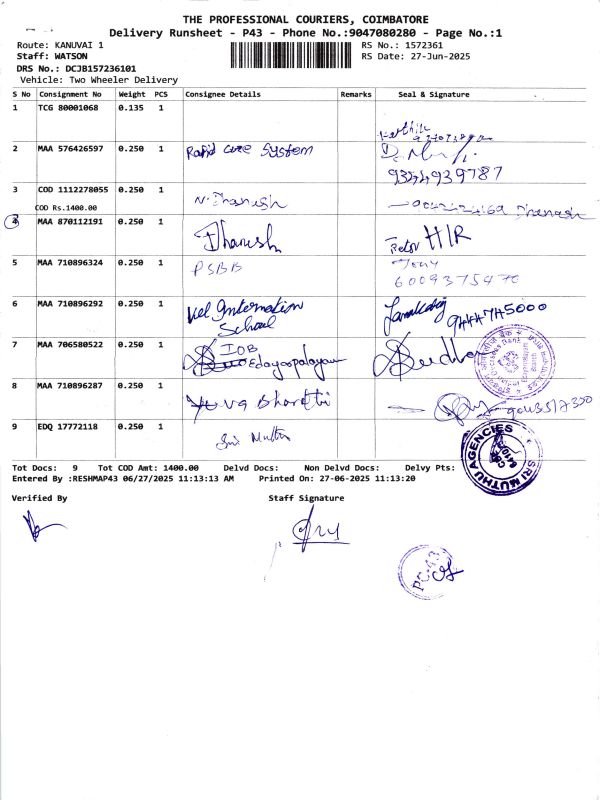 THE PROFESSIONAL COURIERS, COIMBATORE
Delivery Runsheet - P43 - Phone No.:9047080280 - Page No.:1
Route: KANUVAI 1
RS No.: 1572361
Staff: WATSON
RS Date: 27-Jun-2025
DRS No.: DCJB157236101
Vehicle: Two Wheeler Delivery
S No Consignment No Weight PCS Consignee Details Remarks Seal & Signature
1 TCG 80001068 0.135 1
2 MAA 576426597 0.250 1 Rapid care System
9354939787
3 COD 1112278055 0.250 1 N. Dhanush Dhanush
COD Rs.1400.00
4 MAA 870112191 0.250 1 Dhanush HIR
5 MAA 710896324 0.250 1 PSBB Tony
6009375470
6 MAA 710896292 0.250 1 Vel Internation School 9444745000
7 MAA 706580522 0.250 1 IOB Edayarpalayam
8 MAA 710896287 0.250 1 Yuva Bharathi
9 EDQ 17772118 0.250 1 Sri Muthu
SRI MUTHU AGENCIES
Tot Docs: 9 Tot COD Amt: 1400.00 Delvd Docs: Non Delvd Docs: Delvy Pts:
Entered By :RESHMAP43 06/27/2025 11:13:13 AM Printed On: 27-06-2025 11:13:20
Verified By Staff Signature
PC-43